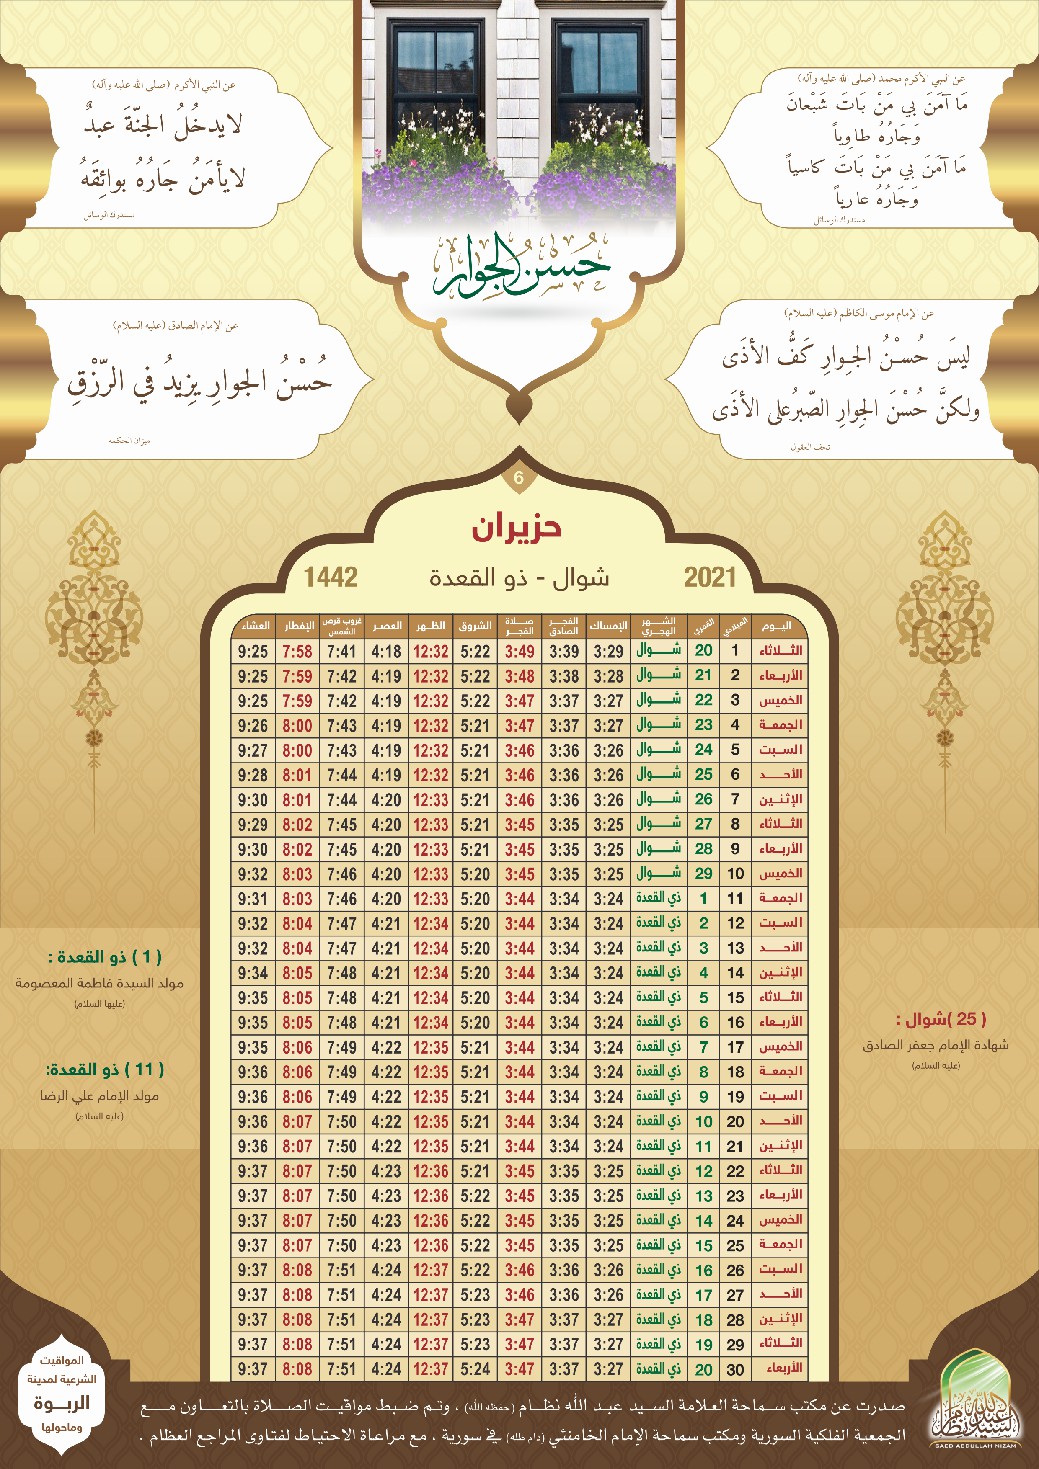 عن النبي الأكرم محمد (صلى الله عليه وآله)
مَا آمَنَ بي مَنْ بَاتَ شَبْعانَ
وَجَارُهُ طاوِياً
مَا آمَنَ بي مَنْ بَاتَ كاسياً
وَجَارُهُ عارياً
مستدرك الوسائل
عن النبي الأكرم (صلى الله عليه وآله)
لايدخُلُ الجنّةَ عبدٌ
لايأمَنُ جَارُهُ بوائِقَهُ
مستدرك الوسائل
حُسن الجوار
عن الإمام موسى الكاظم (عليه السلام)
ليسَ حُسْنُ الجِوارِ كَفُّ الأذَى
ولكنَّ حُسْنَ الجِوارِ الصّبرُعلى الأذَى
تحف العقول
عن الإمام الصادق (عليه السلام)
حُسْنُ الجوارِ يزيدُ في الرّزْقِ
ميزان الحكمة
6
حزيران
2021 شوال - ذو القعدة 1442
اليوم الميلادي القمري الشهر الهجري الإمساك الفجر الصادق صلاة الفجر الشروق الظهر العصر غروب قرص الشمس الإفطار العشاء
الثلاثاء 1 20 شوال 3:29 3:39 3:49 5:22 12:32 4:18 7:41 7:58 9:25
الأربعاء 2 21 شوال 3:28 3:38 3:48 5:22 12:32 4:19 7:42 7:59 9:25
الخميس 3 22 شوال 3:27 3:37 3:47 5:22 12:32 4:19 7:42 7:59 9:25
الجمعة 4 23 شوال 3:27 3:37 3:47 5:21 12:32 4:19 7:43 8:00 9:26
السبت 5 24 شوال 3:26 3:36 3:46 5:21 12:32 4:19 7:43 8:00 9:27
الأحد 6 25 شوال 3:26 3:36 3:46 5:21 12:32 4:19 7:44 8:01 9:28
الإثنين 7 26 شوال 3:26 3:36 3:46 5:21 12:33 4:20 7:44 8:01 9:30
الثلاثاء 8 27 شوال 3:25 3:35 3:45 5:21 12:33 4:20 7:45 8:02 9:29
الأربعاء 9 28 شوال 3:25 3:35 3:45 5:21 12:33 4:20 7:45 8:02 9:30
الخميس 10 29 شوال 3:25 3:35 3:45 5:20 12:33 4:20 7:46 8:03 9:32
الجمعة 11 1 ذي القعدة 3:24 3:34 3:44 5:20 12:33 4:20 7:46 8:03 9:31
السبت 12 2 ذي القعدة 3:24 3:34 3:44 5:20 12:34 4:21 7:47 8:04 9:32
الأحد 13 3 ذي القعدة 3:24 3:34 3:44 5:20 12:34 4:21 7:47 8:04 9:32
الإثنين 14 4 ذي القعدة 3:24 3:34 3:44 5:20 12:34 4:21 7:48 8:05 9:34
الثلاثاء 15 5 ذي القعدة 3:24 3:34 3:44 5:20 12:34 4:21 7:48 8:05 9:35
الأربعاء 16 6 ذي القعدة 3:24 3:34 3:44 5:20 12:34 4:21 7:48 8:05 9:35
الخميس 17 7 ذي القعدة 3:24 3:34 3:44 5:21 12:35 4:22 7:49 8:06 9:35
الجمعة 18 8 ذي القعدة 3:24 3:34 3:44 5:21 12:35 4:22 7:49 8:06 9:36
السبت 19 9 ذي القعدة 3:24 3:34 3:44 5:21 12:35 4:22 7:49 8:06 9:36
الأحد 20 10 ذي القعدة 3:24 3:34 3:44 5:21 12:35 4:22 7:50 8:07 9:36
الإثنين 21 11 ذي القعدة 3:24 3:34 3:44 5:21 12:35 4:22 7:50 8:07 9:36
الثلاثاء 22 12 ذي القعدة 3:25 3:35 3:45 5:21 12:36 4:23 7:50 8:07 9:37
الأربعاء 23 13 ذي القعدة 3:25 3:35 3:45 5:22 12:36 4:23 7:50 8:07 9:37
الخميس 24 14 ذي القعدة 3:25 3:35 3:45 5:22 12:36 4:23 7:50 8:07 9:37
الجمعة 25 15 ذي القعدة 3:25 3:35 3:45 5:22 12:36 4:23 7:50 8:07 9:37
السبت 26 16 ذي القعدة 3:26 3:36 3:46 5:22 12:37 4:24 7:51 8:08 9:37
الأحد 27 17 ذي القعدة 3:26 3:36 3:46 5:23 12:37 4:24 7:51 8:08 9:37
الإثنين 28 18 ذي القعدة 3:27 3:37 3:47 5:23 12:37 4:24 7:51 8:08 9:37
الثلاثاء 29 19 ذي القعدة 3:27 3:37 3:47 5:23 12:37 4:24 7:51 8:08 9:37
الأربعاء 30 20 ذي القعدة 3:27 3:37 3:47 5:24 12:37 4:24 7:51 8:08 9:37
( 25 )شوال :
شهادة الإمام جعفر الصادق
(عليه السلام)
( 1 ) ذو القعدة :
مولد السيدة فاطمة المعصومة
(عليها السلام)
( 11 ) ذو القعدة:
مولد الإمام علي الرضا
(عليه السلام)
المواقيت
الشرعية لمدينة
الربوة
وماحولها
صدرت عن مكتب سماحة العلامة السيد عبد الله نظام (حفظه الله) ، وتم ضبط مواقيت الصلاة بالتعاون مع
الجمعية الفلكية السورية ومكتب سماحة الإمام الخامنئي (دام ظله) في سورية ، مع مراعاة الاحتياط لفتاوى المراجع العظام .
السيد عبدالله نظام
SAED ABDULLAH NIZAM